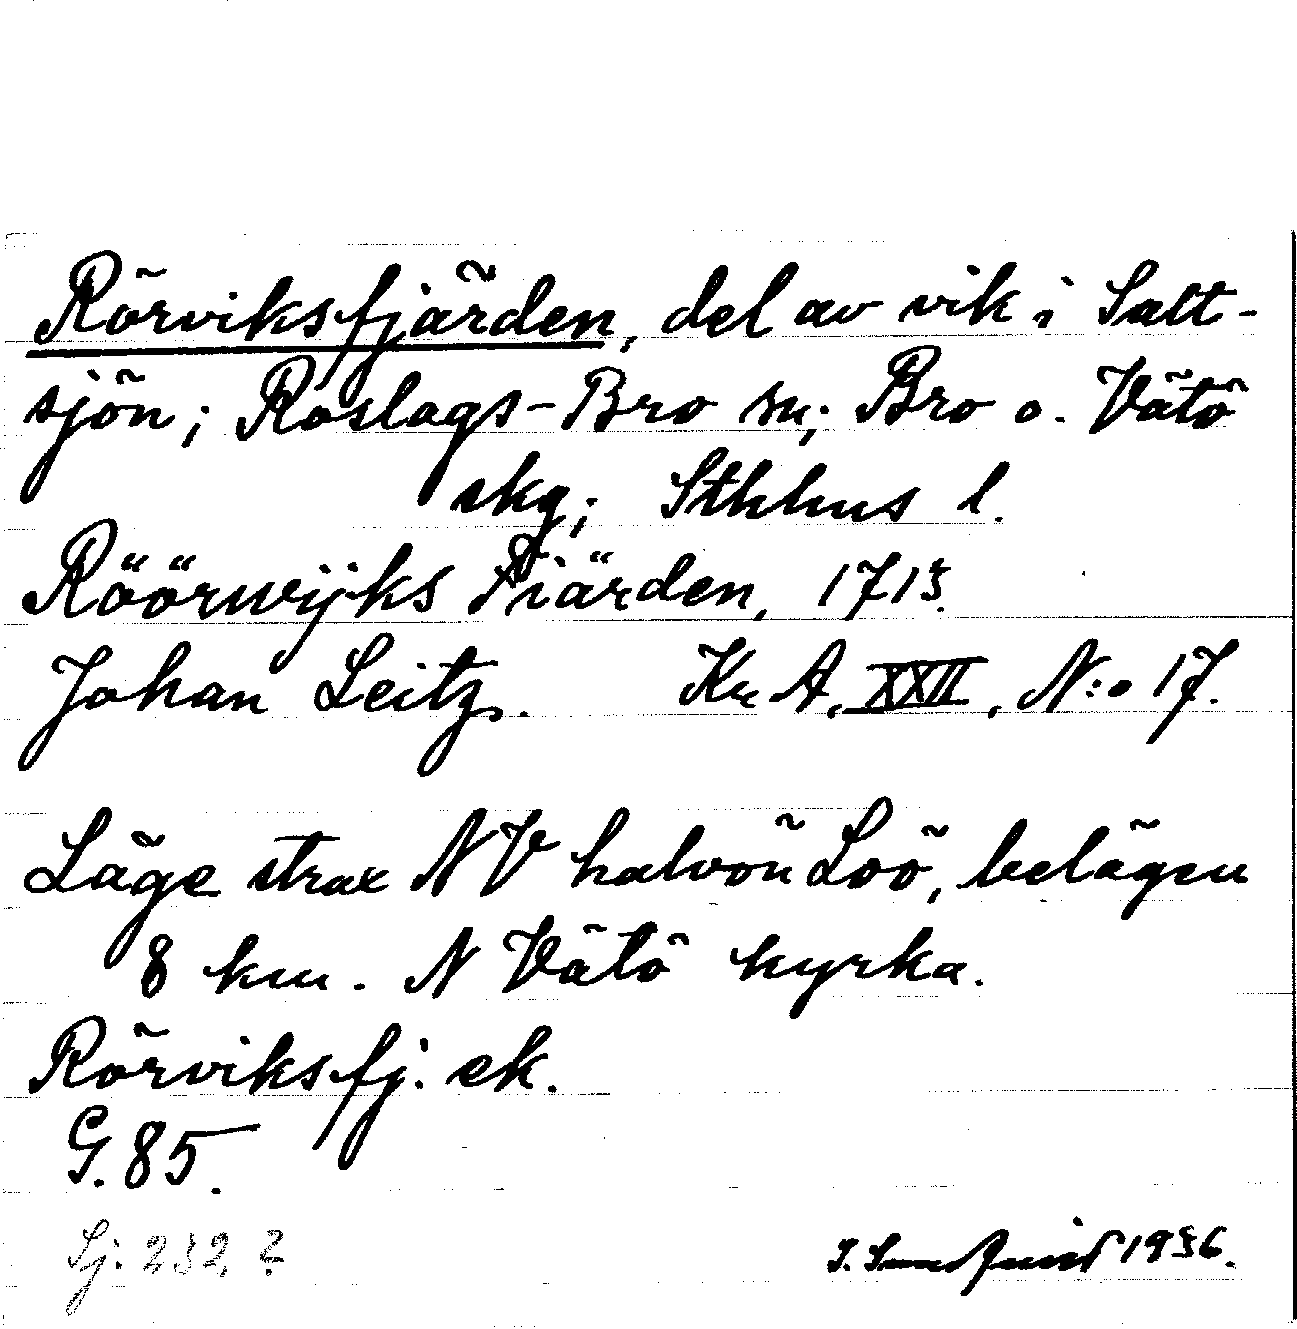 Rörviksfjärden, del av vik i Salt-
sjön; Roslags-Bro sn; Bro o. Vätö
skg; Sthlms l.
Röörwijks Fiärden, 1713.
Johan Leitz. Kr A, XXII, N:o 17.
Läge strax NV halvön Loö, belägen
8 km. N Vätö kyrka.
Rörviksfj. ek.
G. 85.
Sj. 232. 2
1936.